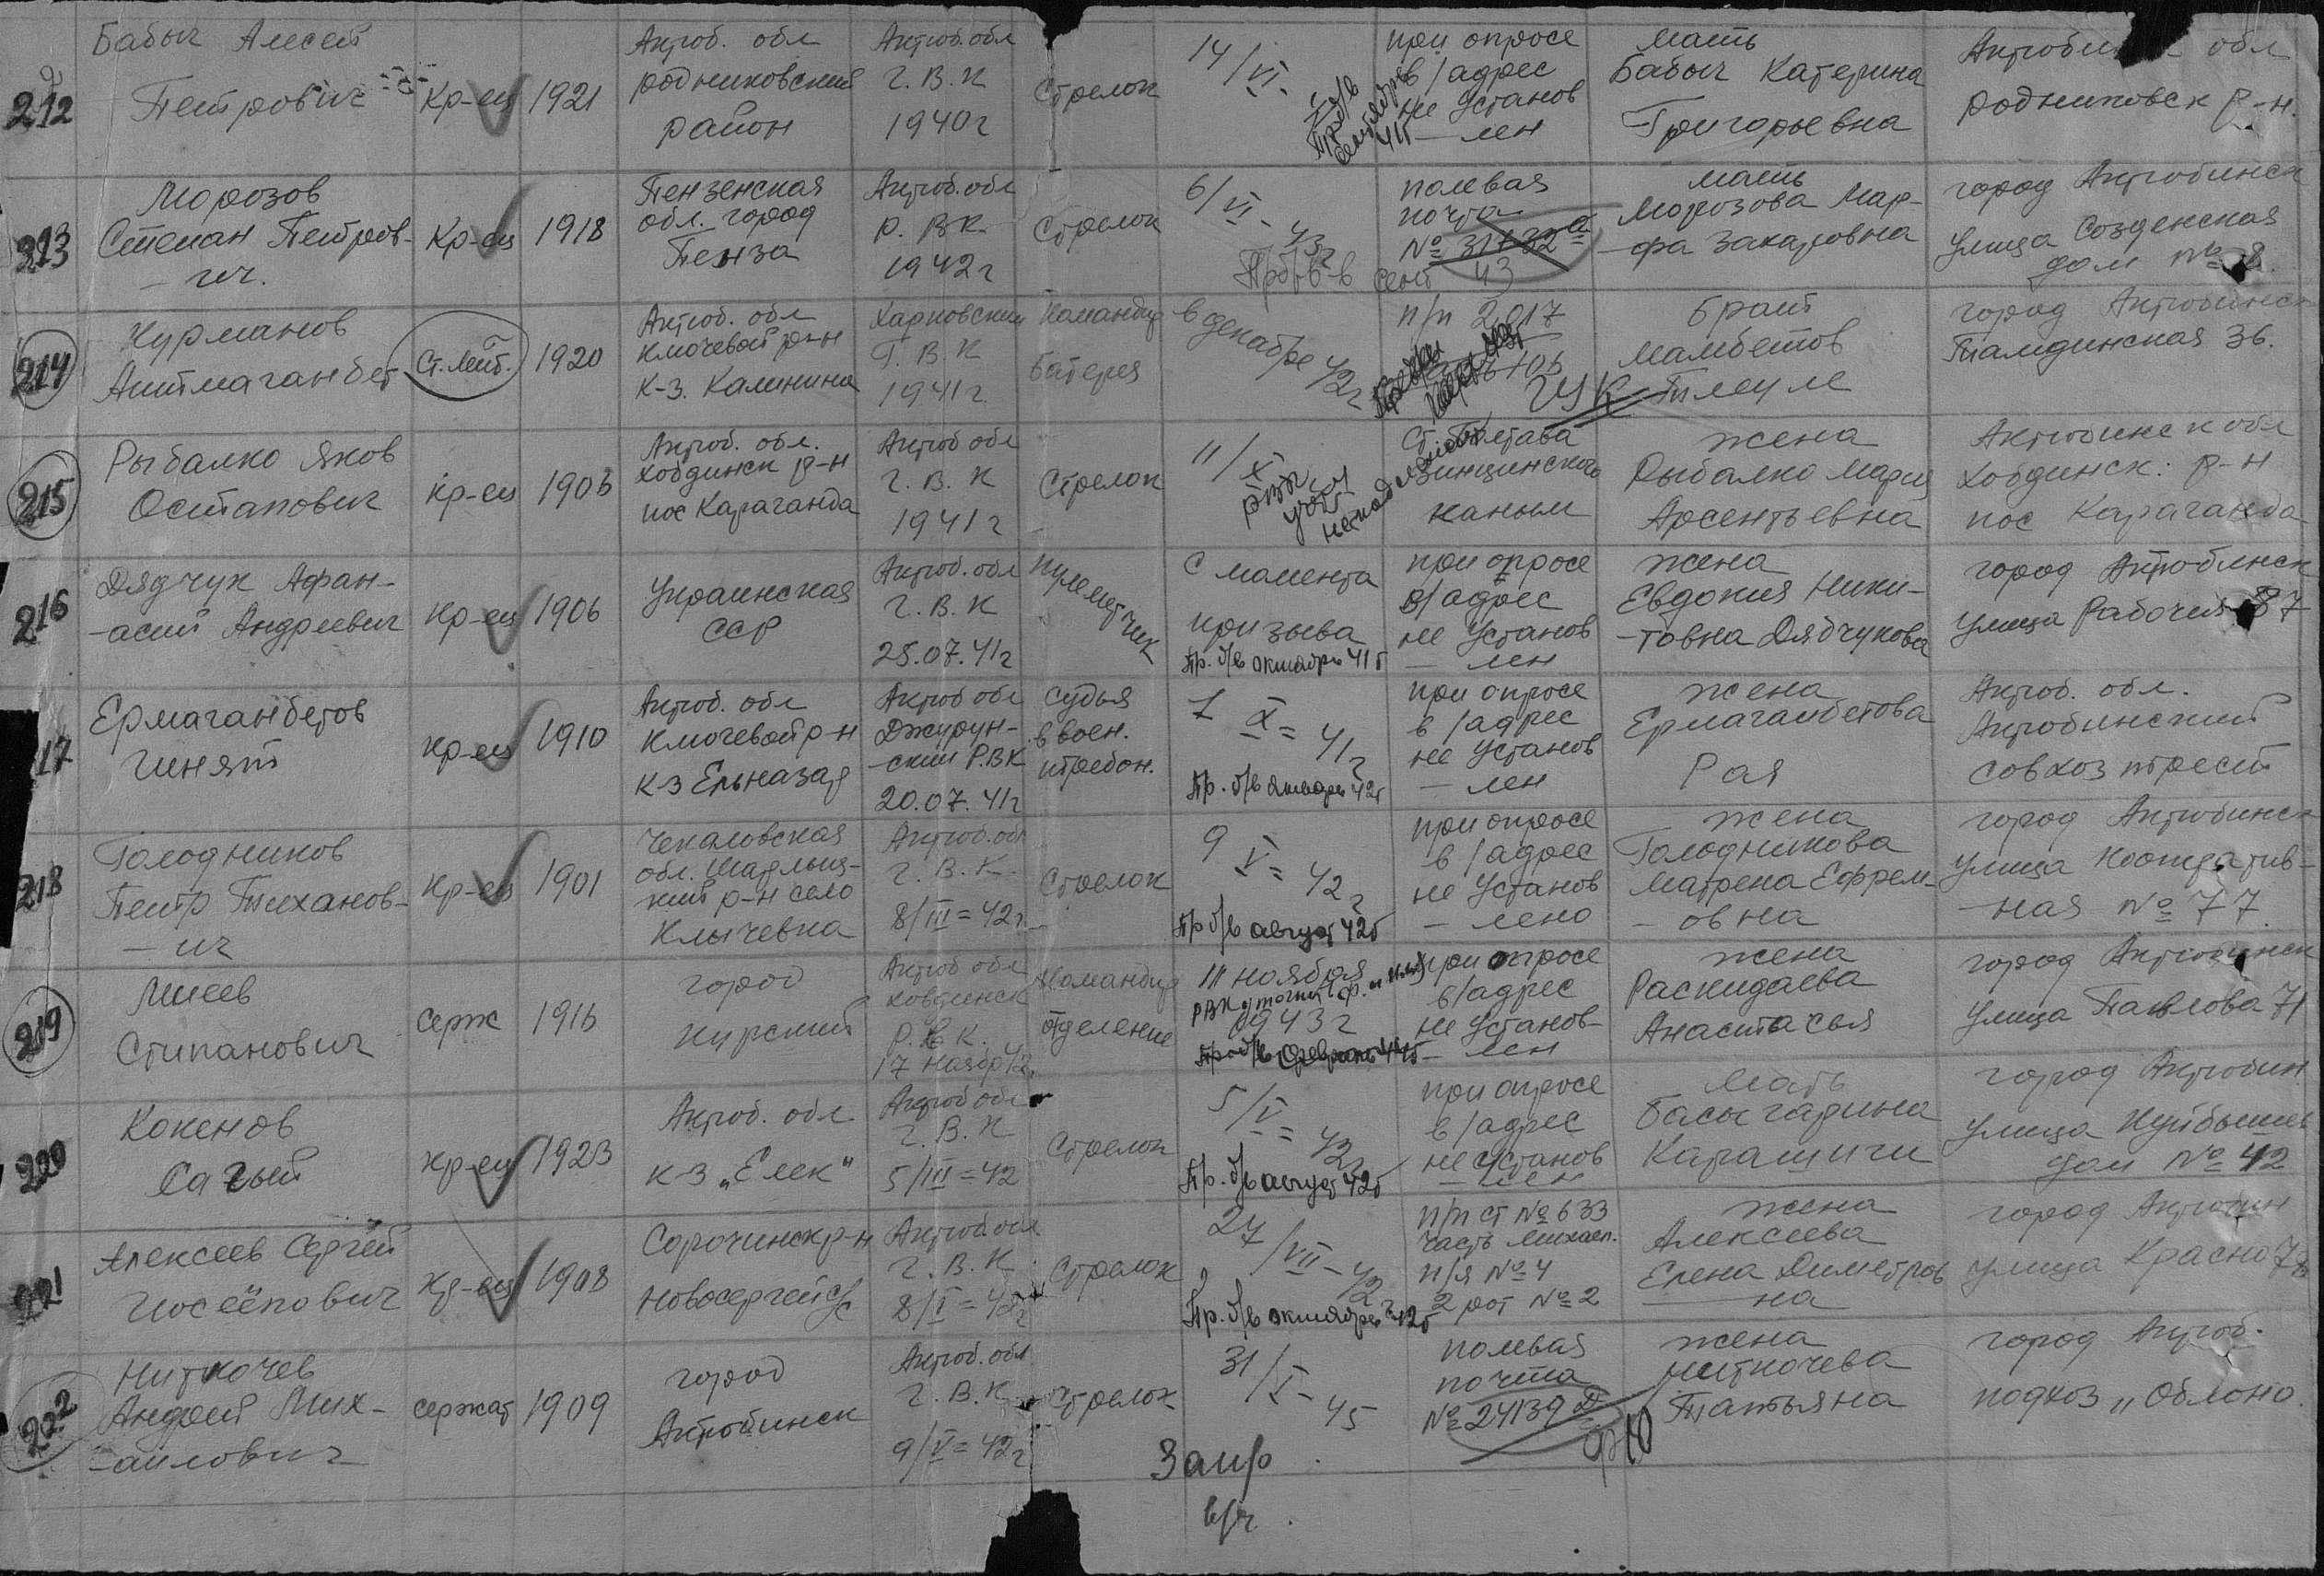 212
Бабыч Алесей
Петрович
Кр-ец
1921
Актоб. обл
родниковский
район
Актоб. обл
Г. В. К
1940 г
Стрелок
14/VI
при опросе
в/адрес
не установ
– лен
мать
Бабыч Катерина
Григорьевна
обл
родниковск р-н.
213
Морозов
Степан Петров-
– ич.
Кр-ец
1918
Пензенская
обл. город
Пенза
Актоб. обл
Р. ВК
1942 г
Стрелок
6/VI – 43 г
полевая
почта
№
сент 43
мать
Морозова Мар-
– фа Захаровна
город Актюбинск
улица Созденская
дом №
214
Курманов
Аитмаганбет
Ст. лейт.
1920
Актоб. обл
Ключевой р-н
К-з. Калинина
Харковский
Г. В. К
1941 г.
Командир
батерея
в декабре 42 г
п/п 2017
ГУК
брат
Мамбетов
Тлеуле
город Актюбинск
Тамдинская 36.
215
Рыбалко Яков
Остапович
кр-ец
1906
Актоб. обл.
Хобдинск р-н
пос Караганда
Актоб обл
Г. В. К
1941 г
Стрелок
11/X
РВК
Ст. Полтава
Зинцинского
каным
жена
Рыбалко Мария
Арсентьевна
Актюбинск обл
Хобдинск: р-н
пос Караганда
216
Дядчук Афан-
– асий Андреевич
Кр-ец
1906
Украинская
ССР
Актоб. обл
Г. В. К
25.07.41 г
пулеметчик
С мамента
призыва
Пр. б/в октябрь 41 г
при опросе
в/адрес
не установ
– лен
жена
Евдокия Ники-
– товна Дядчукова
город Актюбинск
улица Рабочия 87
17
Ермаганбетов
Гинят
кр-ец
1910
Актоб. обл
Ключевой р-н
К-З Ельназар
Актоб обл
Джурун-
– ский Р.ВК
20.07.41 г
судья
в воен.
требон.
1 X = 41 г
Пр. б/в январь 42 г
при опросе
в/адрес
не установ
– лен
жена
Ермаганбетова
Рая
Актоб. обл.
Актобинский
совхоз трест
218
Голодников
Петр Тиханов-
– ич
Кр-ец
1901
Чекаловская
обл. Шарлыц-
кий р-н село
Клычевка
Актоб. обл
Г. В. К.
8/III = 42 г.
Стрелок
9 V = 42 г
Пр б/в август 42 г
при опросе
в/адрес
не установ
– лено
жена
Голодникова
Матрена Ефрем-
– овна
город Актюбинск
улица Кооператив-
– ная № 77.
219
Миеев
Стипанович
серж
1916
город
Курский
Актоб обл
ховдинск
Р. В К.
17 наябр 42
Командир
отделение
11 ноября
1943 г
при опросе
в/адрес
не установ-
– лен
жена
Раскидаева
Анастасья
город Актюбинск
улица Павлова 71
220
Кокенов
Сагый
кр-ец
1923
Актоб. обл.
К-З „Елек“
Актоб обл
Г. В. К
5/III = 42
Стрелок
5/V = 42 г
Пр. б/в август 42 г
при опросе
в/адрес
не установ
– лен
мать
Басыгарина
Карашиги
город Актюбин
улица Куйбышев
дом № 42
221
Алексеев Сергей
Иосёпович
Кр-ец
1908
Сорочинск р-н
Новосергей с/с
Актоб обл.
Г. В. К.
8/I = 42 г
Стрелок
27/VII – 42 г
Пр. б/в октябрь 42 г
п/п ст № 633
часть михаел.
п/я № 4
2 рот № 2
жена
Алексеева
Елена Диметров
– на
город Актюбин
улица Красно 78
222
Ниткочев
Андрей Мих-
– аилович
сержат
1909
город
Актюбинск
Актоб. обл
Г. В. К
9/V = 42 г
Стрелок
31/I – 45
Запр.
в/ч.
полевая
почта
№ 24139 Д
жена
Ниткочева
Татьяна
город Актоб.
подхоз „Облоно.